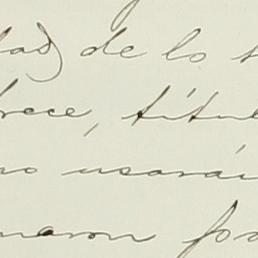 dad) de lo s
frece, títul
no usará
maron fo